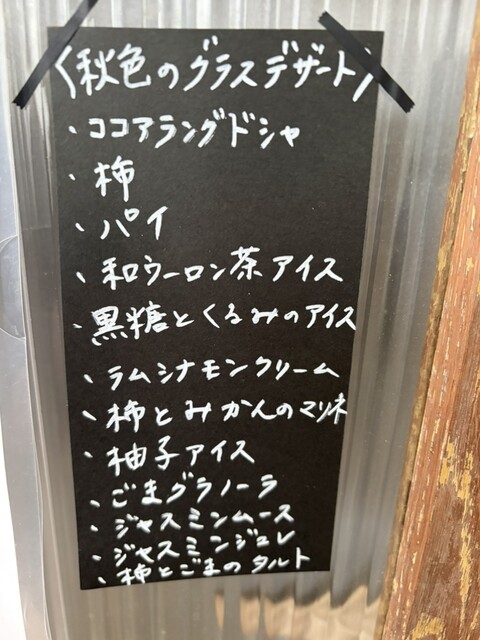 〈秋色のグラスデザート〉
・ココアラングドシャ
・柿
・パイ
・和ウーロン茶アイス
・黒糖とくるみのアイス
・ラムシナモンクリーム
・柿とみかんのマリネ
・柚子アイス
・ごまグラノーラ
・ジャスミンムース
・ジャスミンジュレ
・柿とごまのタルト